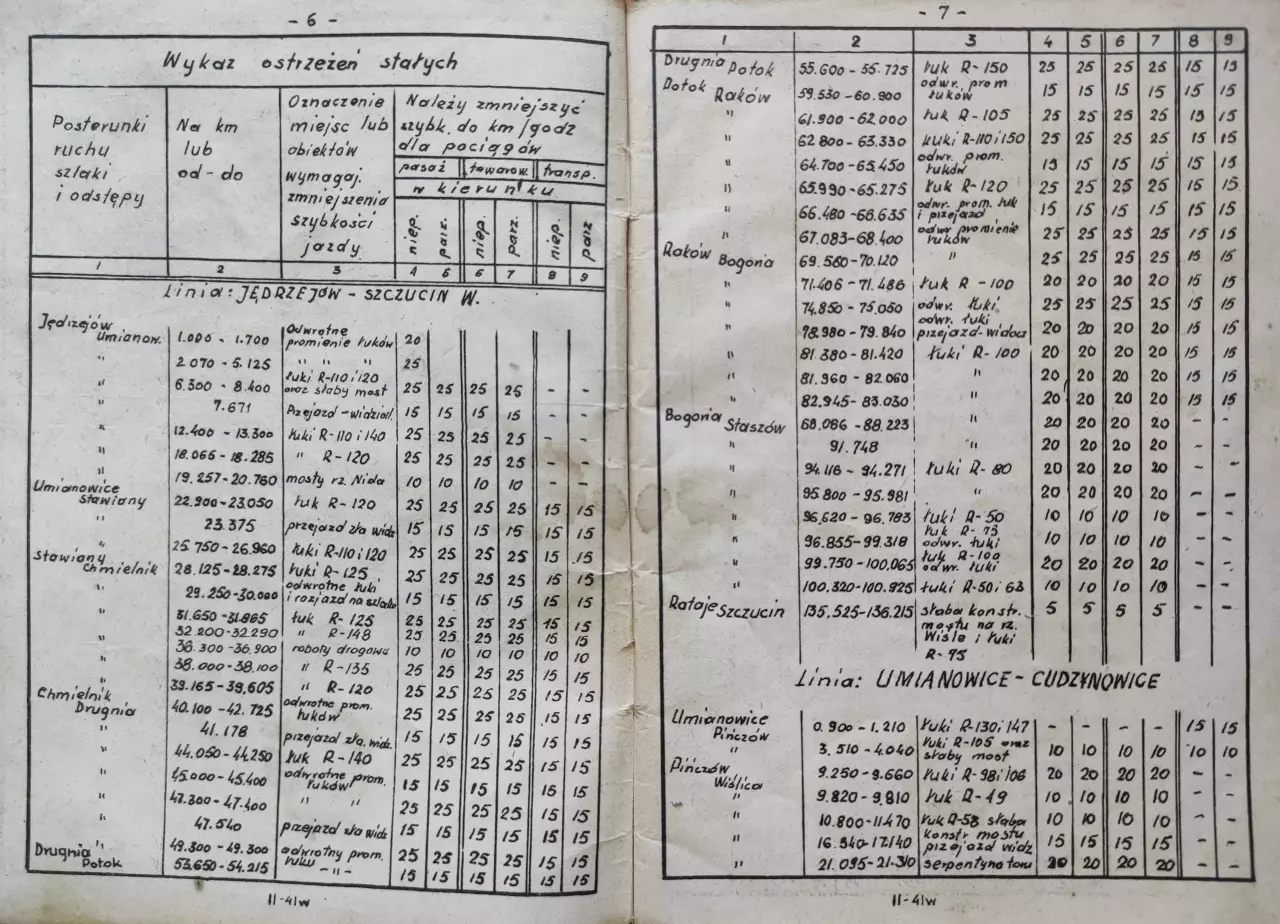 - 6 -
Wykaz ostrzeżeń stałych
Posterunki ruchu szlaki i odstępy
Na km lub od - do
Oznaczenie miejsc lub obiektów wymagaj. zmniejszenia szybkości jazdy
Należy zmniejszyć szybk. do km/godz dla pociągów
pasaż towarow. transp.
w kierunku
niep. parz. niep. parz. niep. parz
1 2 3 4 5 6 7 8 9
Linia: JĘDRZEJÓW - SZCZUCIN W.
Jędrzejów Umianow. 1.006 - 1.700 Odwrotne promienie łuków 20
" 2.070 - 5.125 " " " 25
" 6.300 - 8.400 Łuki R-110 i 120 oraz słaby most 25 25 25 25 - -
" 7.671 Przejazd - widzial. 15 15 15 15 - -
" 12.400 - 13.300 łuki R-110 i 140 25 25 25 25 - -
" 18.066 - 18.285 " R-120 25 25 25 25 - -
" 19.257-20.760 mosty rz. Nida 10 10 10 10 - -
Umianowice Stawiany 22.900-23.050 łuk R-120 25 25 25 25 15 15
" 23.375 przejazd zła widz 15 15 15 15 15 15
" 25.750-26.960 łuki R-110 i 120 25 25 25 25 15 15
Stawiany Chmielnik 28.125-28.275 łuki R-125 25 25 25 25 15 15
" 29.250-30.000 odwrotne łuki i rozjazd na szlaku 15 15 15 15 15 15
" 31.650-31.865 łuk R-125 25 25 25 25 15 15
32.200-32.290 " R-148 25 25 25 25 15 15
" 36.300-36.900 roboty drogowe 10 10 10 10 10 10
38.000-38.100 " R-135 25 25 25 25 15 15
" 39.165-39.605 " R-120 25 25 25 25 15 15
Chmielnik Drugnia 40.100-42.725 odwrotne prom. łuków 25 25 25 25 15 15
" 41.178 przejazd zła. widz. 15 15 15 15 15 15
" 44.050-44.250 łuk R-140 25 25 25 25 15 15
" 45.000-45.400 odwrotne prom. łuków 15 15 15 15 15 15
" 47.300-47.400 " " 25 25 25 25 15 15
" 47.540 przejazd zła widz 15 15 15 15 15 15
" 49.300-49.300 odwrotny prom. łuku 25 25 25 25 15 15
Drugnia Potok 53.650-54.215 - " - 15 15 15 15 15 15
II-41w
- 7 -
1 2 3 4 5 6 7 8 9
Drugnia Potok 55.600-55.725 łuk R-150 25 25 25 25 15 15
Potok Raków 59.530-60.900 odwr. prom łuków 15 15 15 15 15 15
" 61.900-62.000 łuk R-105 25 25 25 25 15 15
" 62.800-63.330 łuki R-110 i 150 25 25 25 25 15 15
" 64.700-65.450 odwr. prom. łuków 15 15 15 15 15 15
" 65.990-65.275 łuk R-120 25 25 25 25 15 15
" 66.480-66.635 odwr. prom. łuk i przejazd 15 15 15 15 15 15
" 67.083-68.400 odwr promienie łuków 25 25 25 25 15 15
Raków Bogoria 69.560-70.120 " 25 25 25 25 15 15
" 71.406-71.486 łuk R-100 20 20 20 20 15 15
" 74.850-75.050 odwr. łuki 25 25 25 25 15 15
" 78.980-79.840 odwr. łuki przejazd-widocz 20 20 20 20 15 15
" 81.380-81.420 łuki R-100 20 20 20 20 15 15
" 81.960-82.060 " 20 20 20 20 15 15
" 82.945-83.030 " 20 20 20 20 15 15
Bogoria Staszów 88.086-88.223 " 20 20 20 20 - -
" 91.748 " 20 20 20 20 - -
" 94.116-94.271 łuki R-80 20 20 20 20 - -
" 95.800-95.981 " 20 20 20 20 - -
" 96.620-96.783 łuki R-50 10 10 10 10 - -
" 96.855-99.318 łuk R-75 odwr. łuki 10 10 10 10 - -
" 99.750-100.065 łuk R-100 odwr. łuki 20 20 20 20 - -
" 100.320-100.925 łuki R-50 i 63 10 10 10 10 - -
Rataje Szczucin 135.525-136.215 słaba konstr. mostu na rz. Wiśle i łuki R-75 5 5 5 5 - -
Linia: UMIANOWICE - CUDZYNOWICE
Umianowice Pińczów 0.900-1.210 łuki R-130 i 147 - - - - 15 15
" 3.510-4.040 łuki R-105 oraz słaby most 10 10 10 10 10 10
Pińczów Wiślica 9.250-9.660 łuki R-98 i 106 20 20 20 20 - -
" 9.820-9.810 łuk R-49 10 10 10 10 - -
" 10.800-11.470 łuk R-53 słaba konstr mostu 10 10 10 10 - -
" 16.340-17.140 przejazd widz 15 15 15 15 - -
" 21.095-21.310 serpentyna toru 20 20 20 20 - -
II-41w